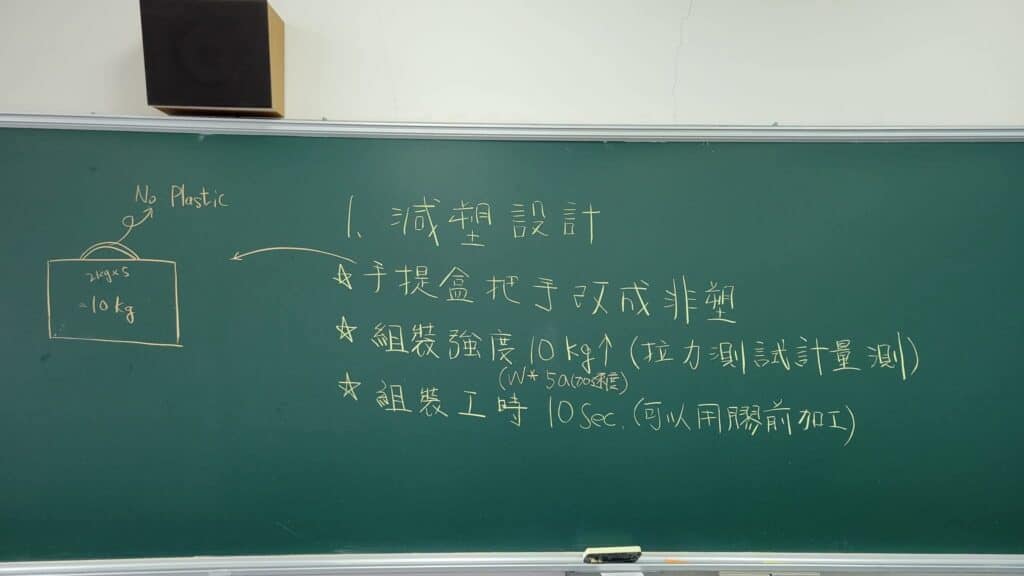 No Plastic
2kg×5
=10kg
1. 減塑設計
☆手提盒把手改成非塑
☆組裝強度10kg↑(拉力測試計量測)
(W*5a(加速度))
☆組裝工時 10 sec. (可以用膠前加工)